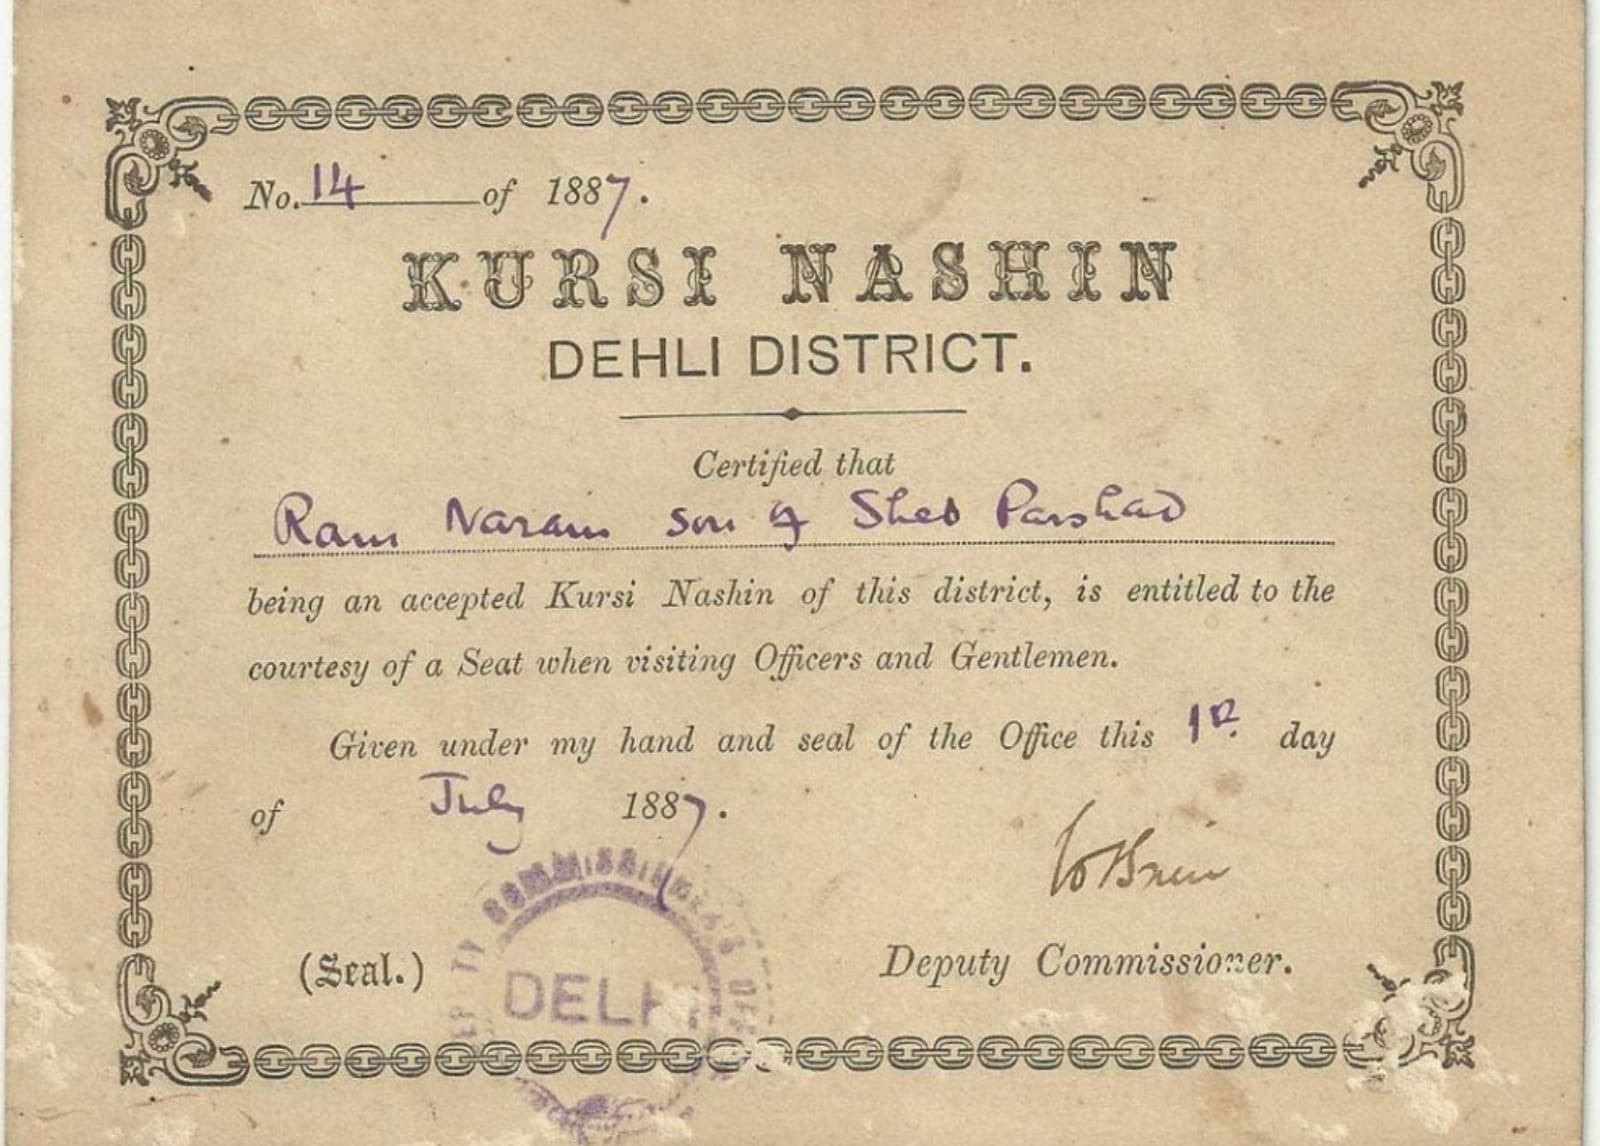 No. 14 of 1887.
KURSI NASHIN
DEHLI DISTRICT.
Certified that
Ram Narain son of Sheo Parshad
being an accepted Kursi Nashin of this district, is entitled to the
courtesy of a Seat when visiting Officers and Gentlemen.
Given under my hand and seal of the Office this 1st day
of July 1887.
(Seal.)
DEPUTY COMMISSIONER'S OFFICE
DELHI
Deputy Commissioner.